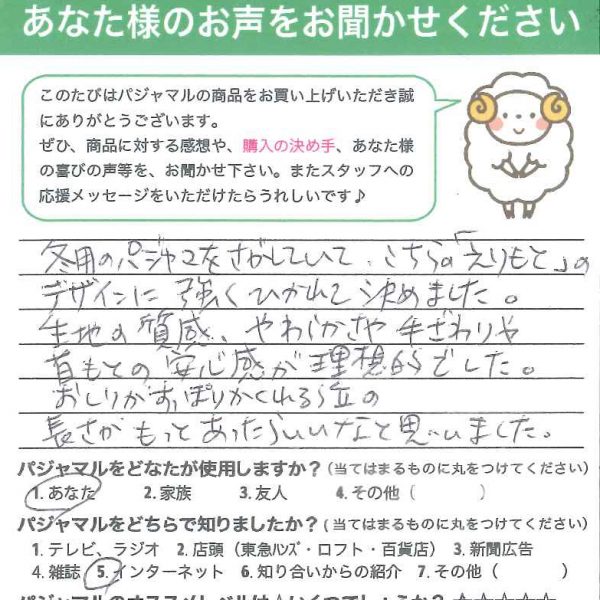 あなた様のお声をお聞かせください
このたびはパジャマルの商品をお買い上げいただき誠
にありがとうございます。
ぜひ、商品に対する感想や、購入の決め手、あなた様
の喜びの声等を、お聞かせ下さい。またスタッフへの
応援メッセージをいただけたらうれしいです♪
冬用のパジャマをさがしていて、こちらの「えりもと」の
デザインに強くひかれて決めました。
生地の質感、やわらかさや手ざわりや
首もとの安心感が理想的でした。
おしりがすっぽりかくれる位の
長さがもっとあったらいいなと思いました。
パジャマルをどなたが使用しますか?(当てはまるものに丸をつけてください)
1. あなた 2. 家族 3. 友人 4. その他( )
パジャマルをどちらで知りましたか?(当てはまるものに丸をつけてください)
1. テレビ、ラジオ 2. 店頭(東急ハンズ・ロフト・百貨店) 3. 新聞広告
4. 雑誌 5. インターネット 6. 知り合いからの紹介 7. その他( )
パジャマルのオススメレベルは☆いくつでしょうか? ☆☆☆☆☆